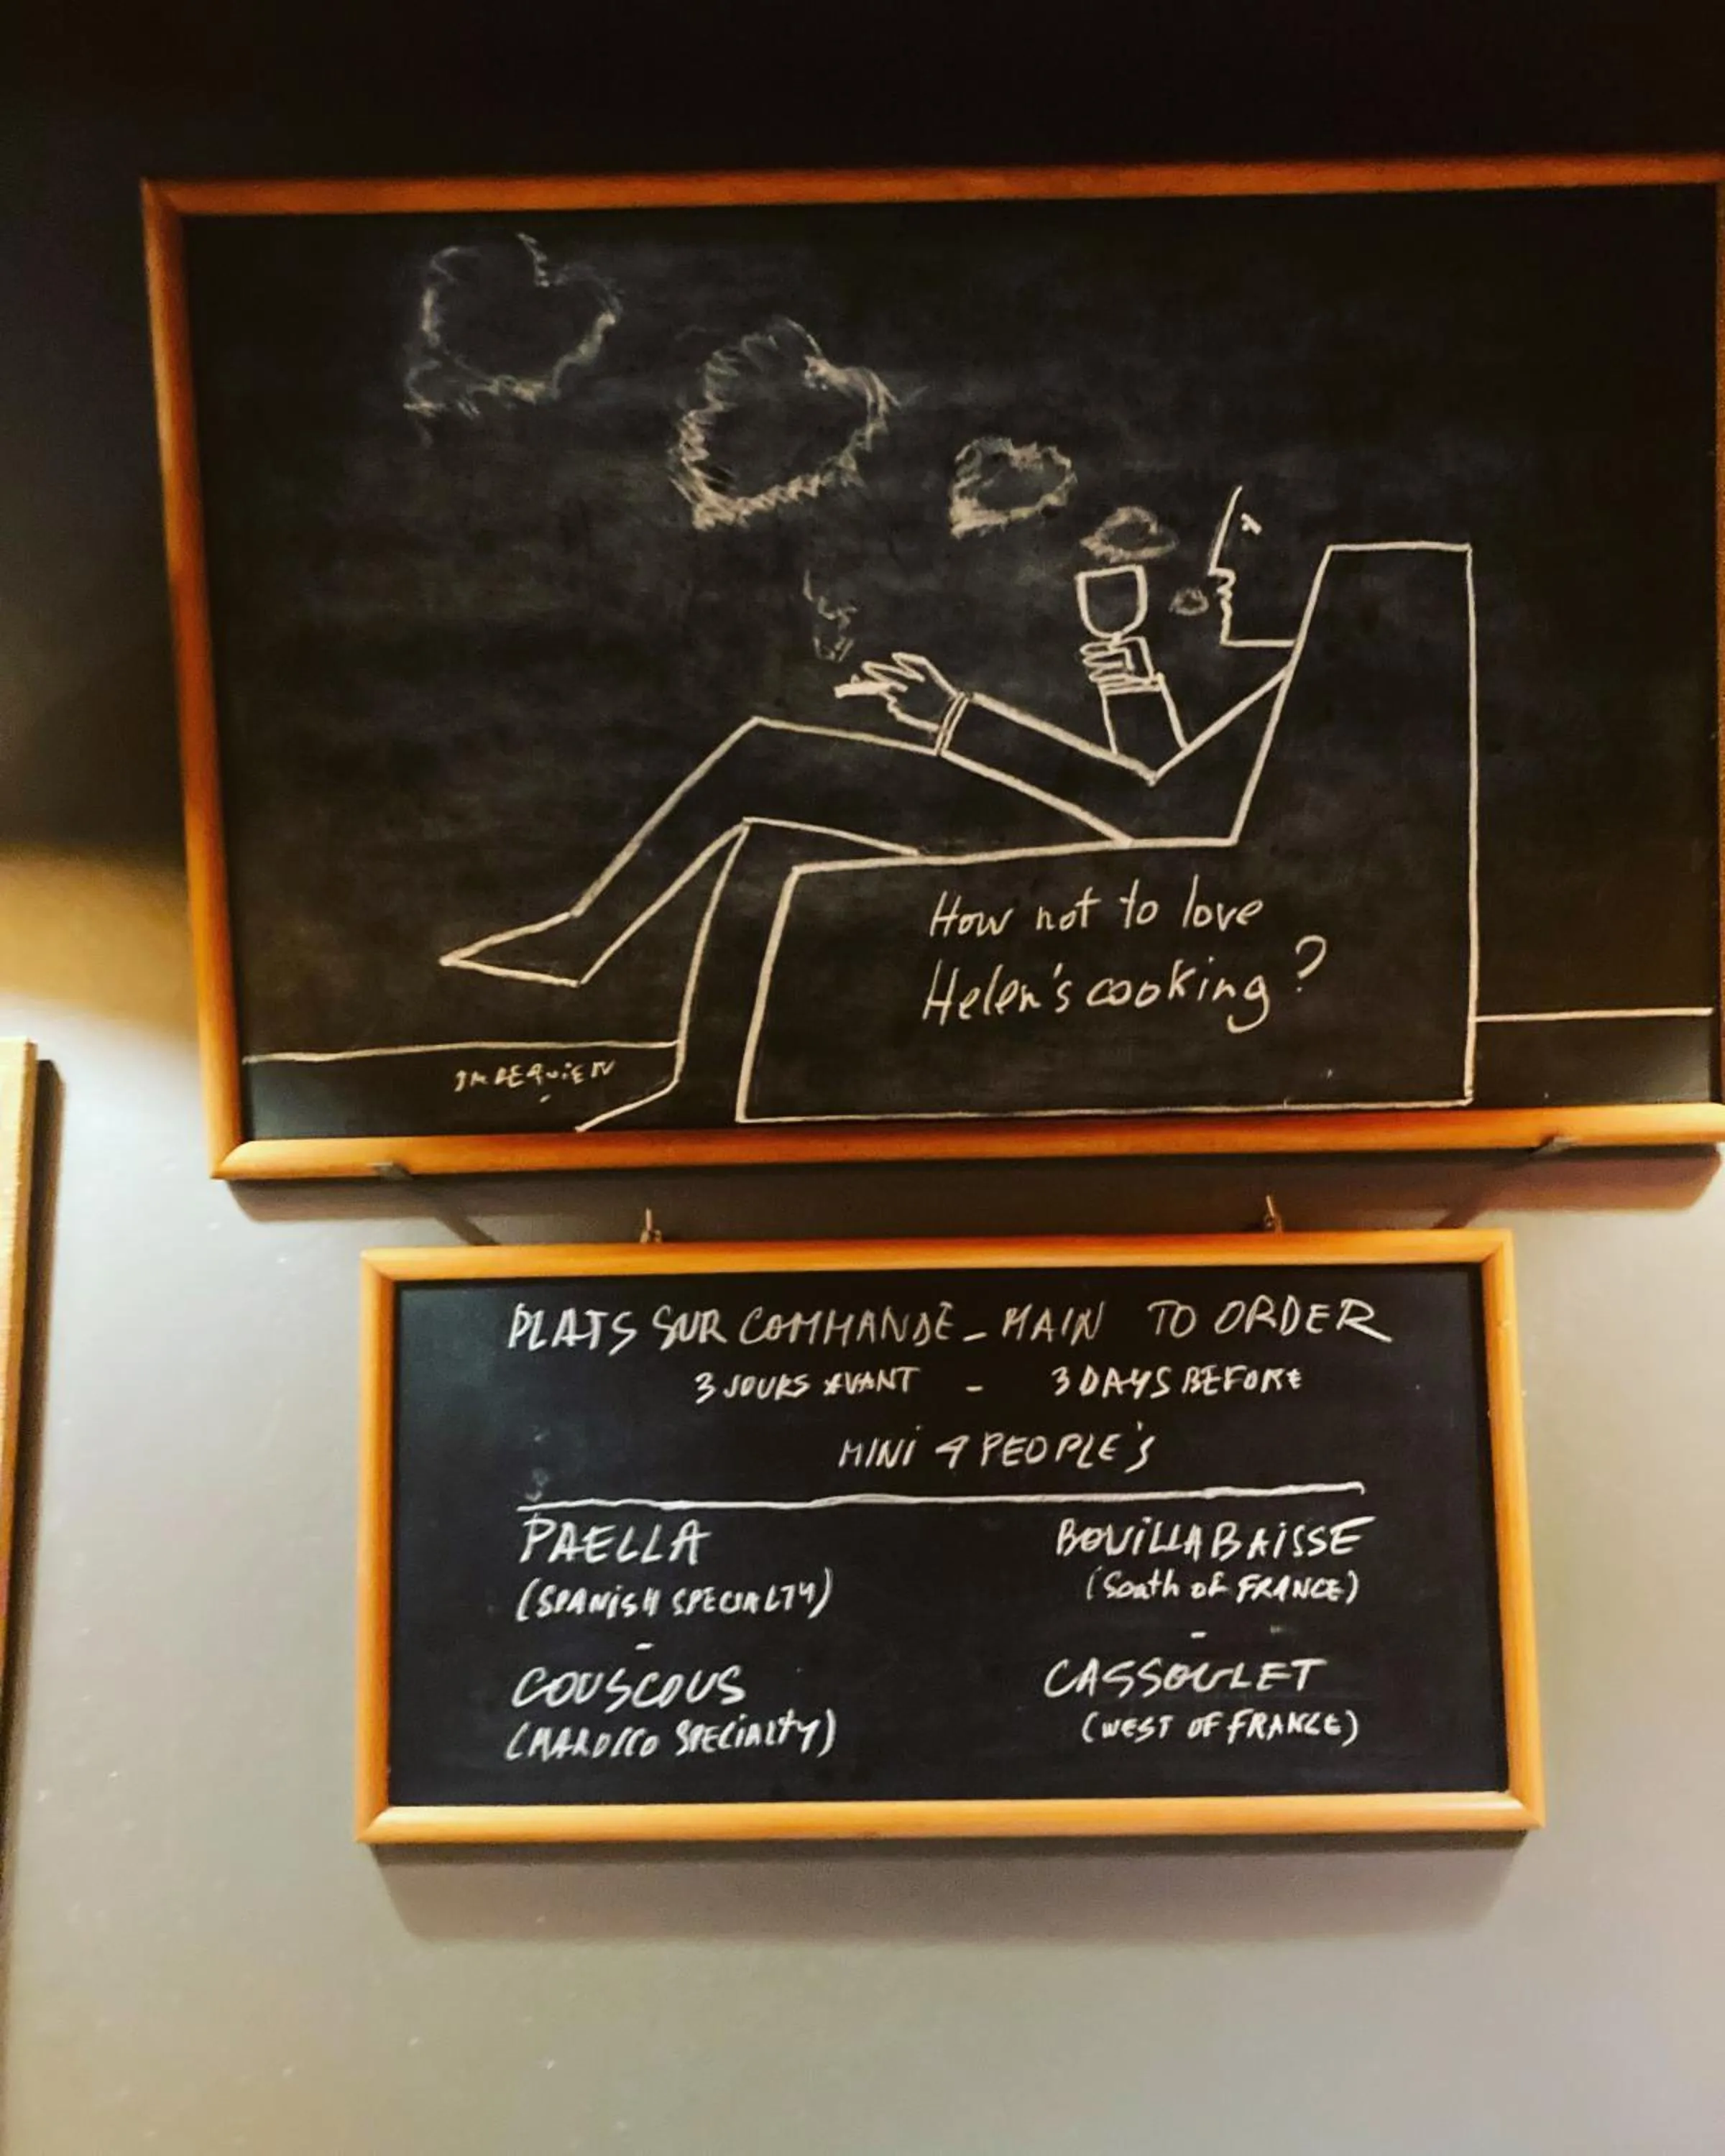 How not to love
Helen's cooking?
PLATS SUR COMMANDE - MAIN TO ORDER
3 JOURS AVANT - 3 DAYS BEFORE
MINI 4 PEOPLE'S
PAELLA
(SPANISH SPECIALTY)
-
COUSCOUS
(MAROCCO SPECIALTY)
BOUILLABAISSE
(South of FRANCE)
-
CASSOULET
(WEST OF FRANCE)